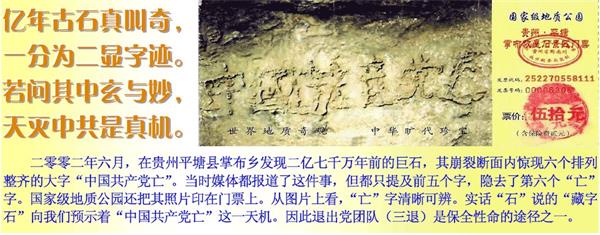 亿年古石真叫奇，
一分为二显字迹。
若问其中玄与妙，
天灭中共是真机。
中国共产党亡
世界地质奇观 中华旷代珍宝
国家级地质公园
贵州·平塘
发票代码：252270558111
票价：伍拾元
二零零二年六月，在贵州平塘县掌布乡发现二亿七千万年前的巨石，其崩裂断面内惊现六个排列
整齐的大字“中国共产党亡”。当时媒体都报道了这件事，但都只提及前五个字，隐去了第六个“亡”
字。国家级地质公园还把其照片印在门票上。从图片上看，“亡”字清晰可辨。实话“石”说的“藏字
石”向我们预示着“中国共产党亡”这一天机。因此退出党团队（三退）是保全性命的途径之一。